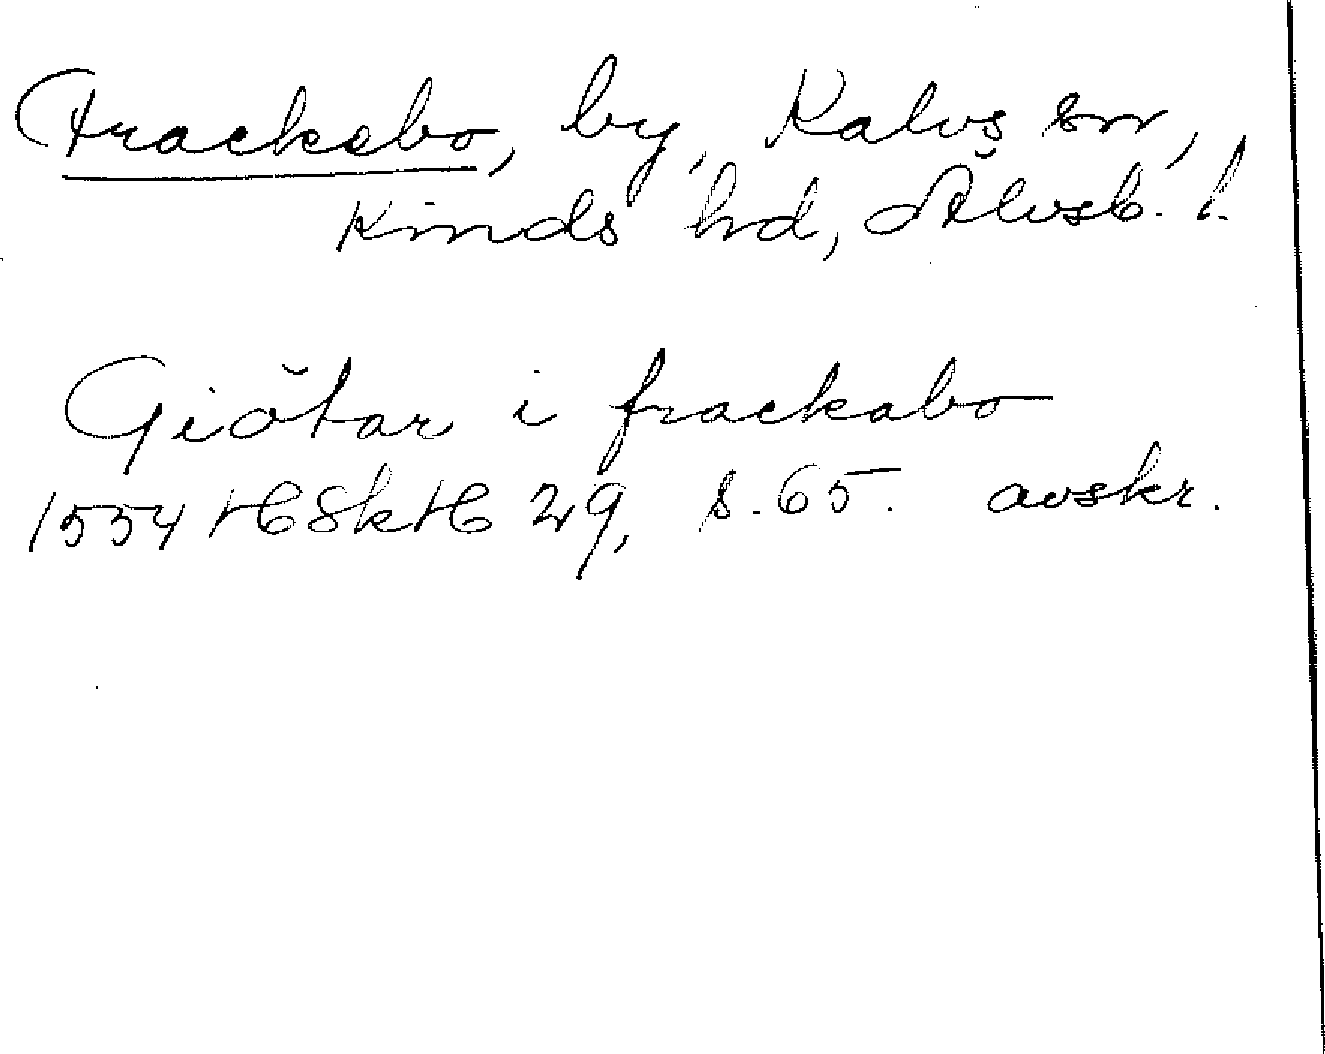 Frackebo, by, Kalvs sn,
Kinds hd, Älvsb. l.
Giötar i frackabo
1554 HSkH 29, s. 65. avskr.